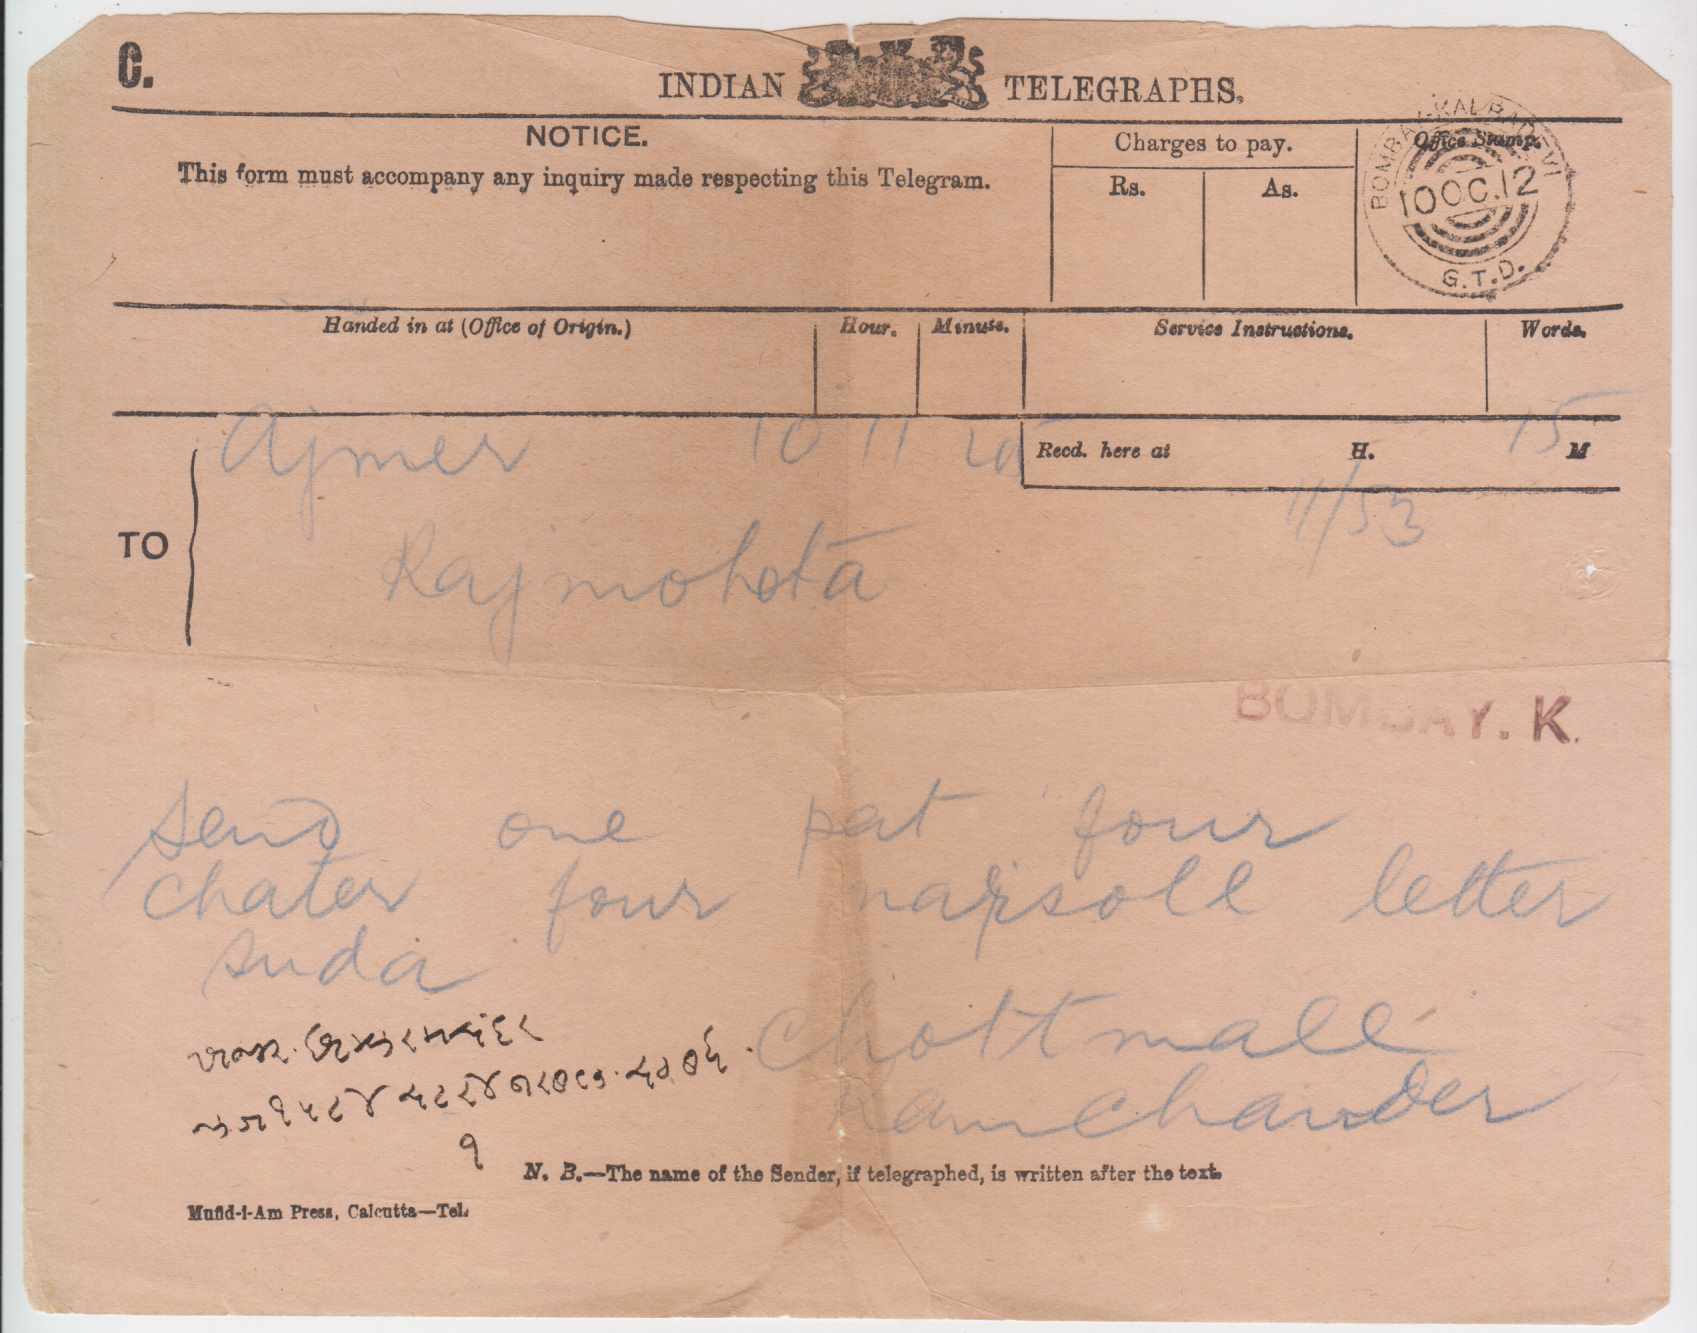 C.
INDIAN TELEGRAPHS.
NOTICE.
This form must accompany any inquiry made respecting this Telegram.
Charges to pay.
Rs. As.
Office Stamp.
BOMBAY-KALBADEVI
10 OC. 12
G.T.D.
Handed in at (Office of Origin.) Hour. Minute. Service Instructions. Words.
Ajmer 10 11 15
Recd. here at H. M
11/53
TO
Rajmohota
BOMBAY. K.
Send one pat four
chater four letter
suda
Chottmall
Ramchander
N. B.—The name of the Sender, if telegraphed, is written after the text.
Mufid-i-Am Press, Calcutta—Tel.